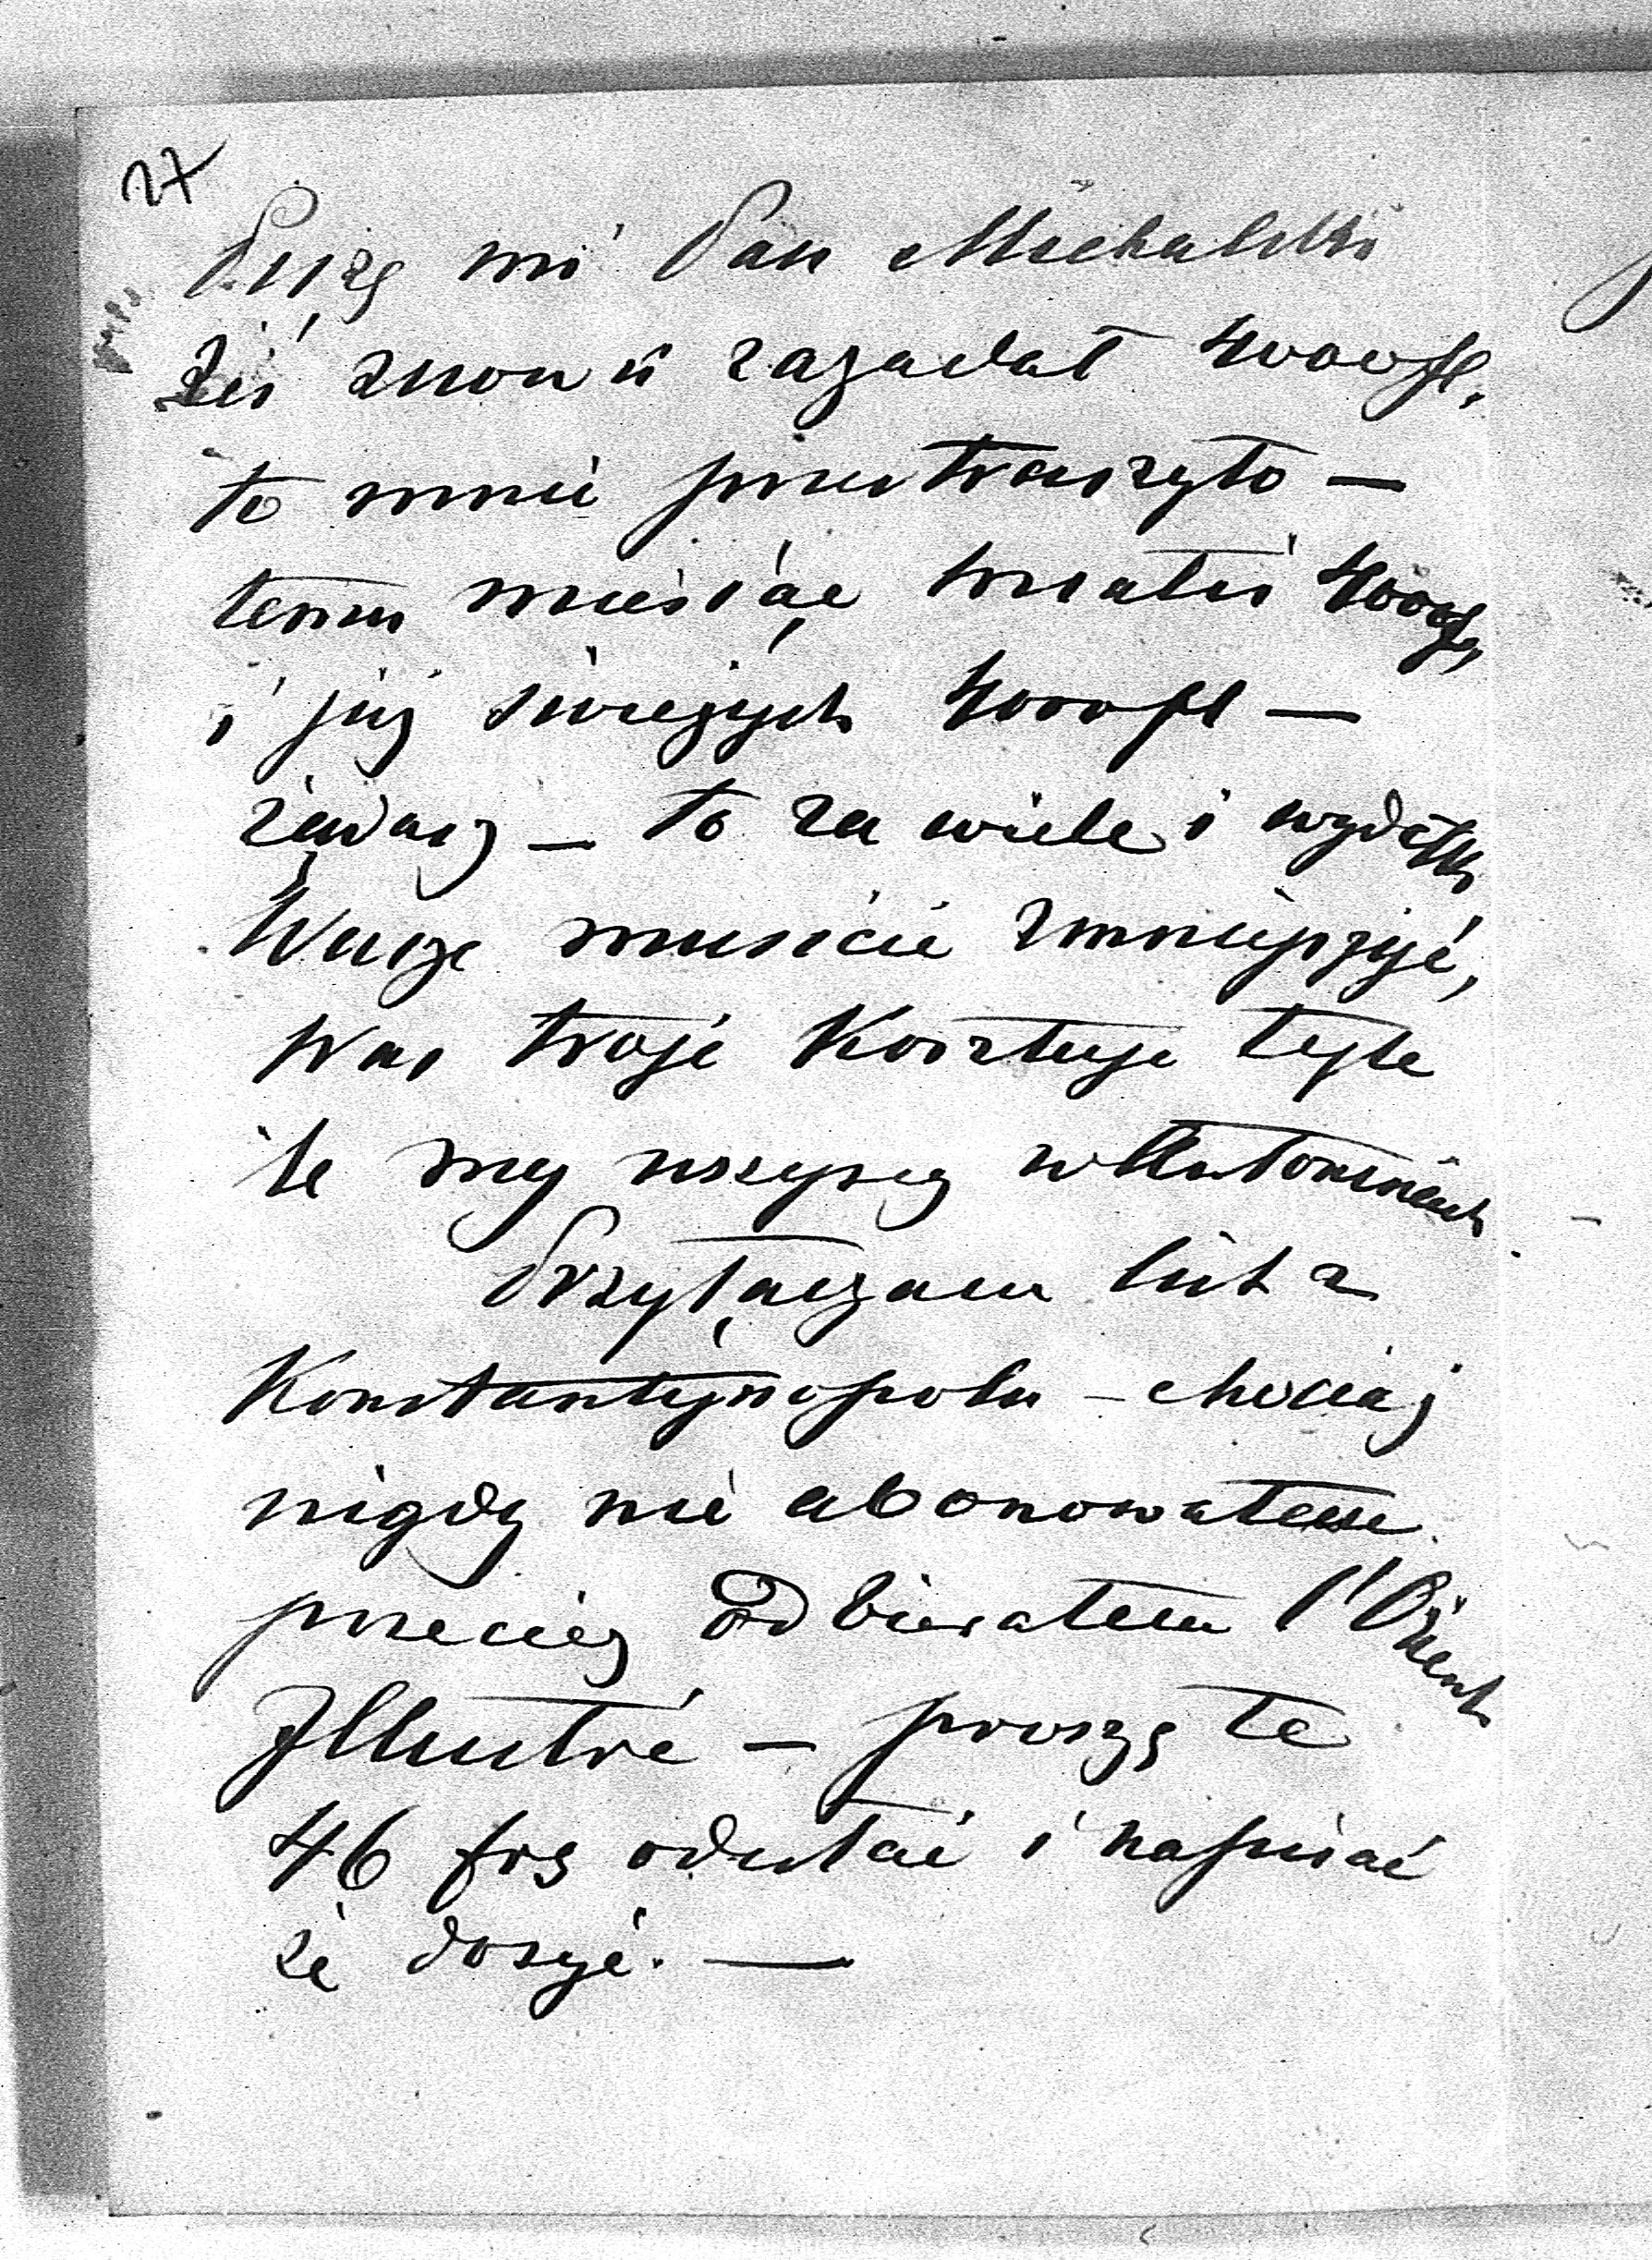 27
Piszę mi Pan Michalski
żeś znowu zażądał 4000 fl.
to mnie przestraszyło —
temu miesiąc wziąłeś 4000 fl,
i już świeżych 4000 fl —
żądasz — to za wiele i wydatki
Wasze musicie zmniejszyć,
Was troje Kosztuje tyle
ile my wszyscy w
Przyłączam list z
Konstantynopolu — chociaż
nigdy nie abonowałem
przecież odbierałem l'Orient
Illustré — proszę te
46 frs odesłać i napisać
że dosyć. —